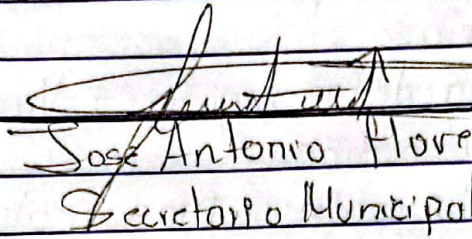 José Antonio Flore
Secretario Municipal